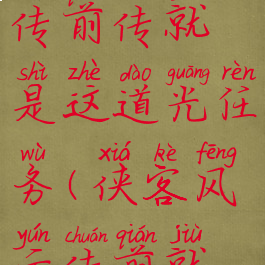 传前传就
shì zhè dào guāng rèn
是这道光任
wù xiá kè fēng
务(侠客风
yún chuán qián jiù
传前就